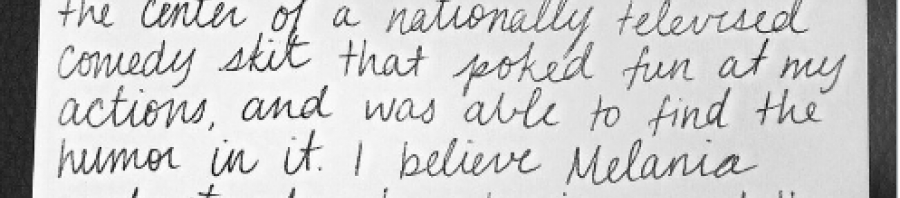 the center of a nationally televised
comedy skit that poked fun at my
actions, and was able to find the
humor in it. I believe Melania